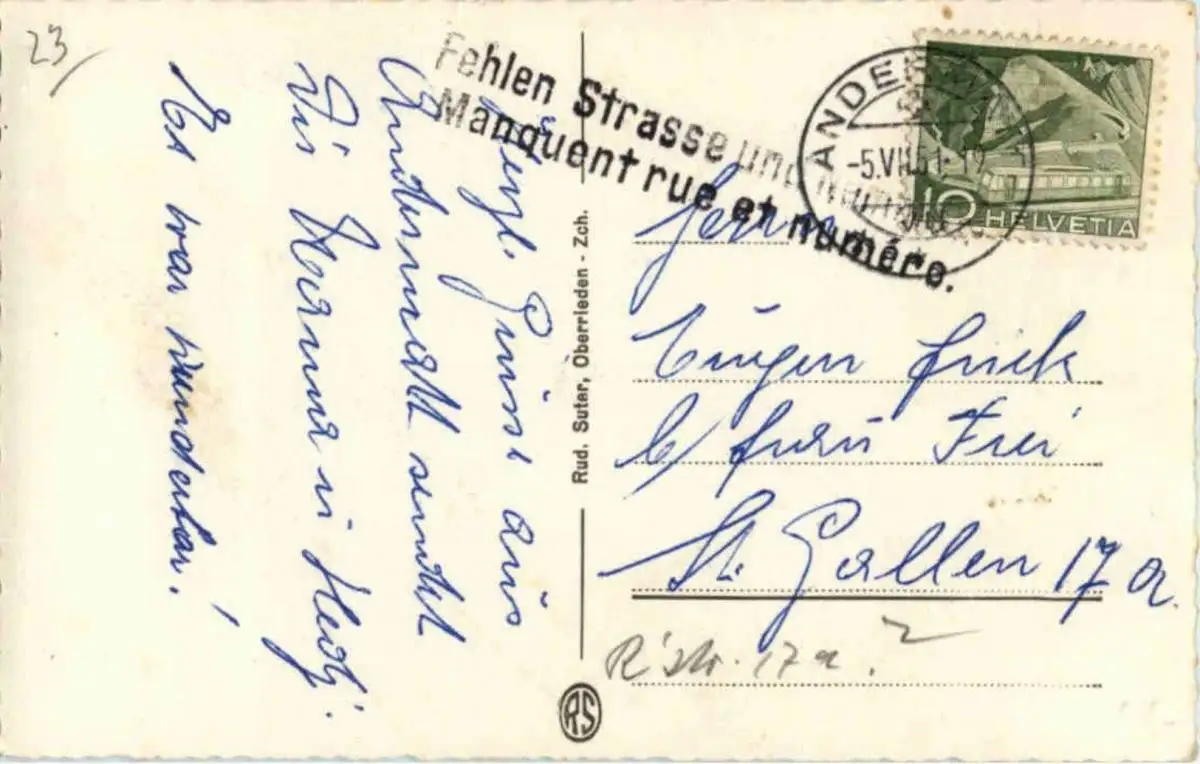 23
Fehlen Strasse und Nummer
Manquent rue et numéro.
ANDERMATT
-5.VII.51-12
10 HELVETIA
Herzl. Grüsse aus
Andermatt sendet
Dir Werner u. Hedj.
Es war wunderbar!
Rud. Suter, Oberrieden - Zch.
RS
Herrn
Eugen Frick
b/ Frau Frei
St. Gallen 17 a
R'str. 17a.